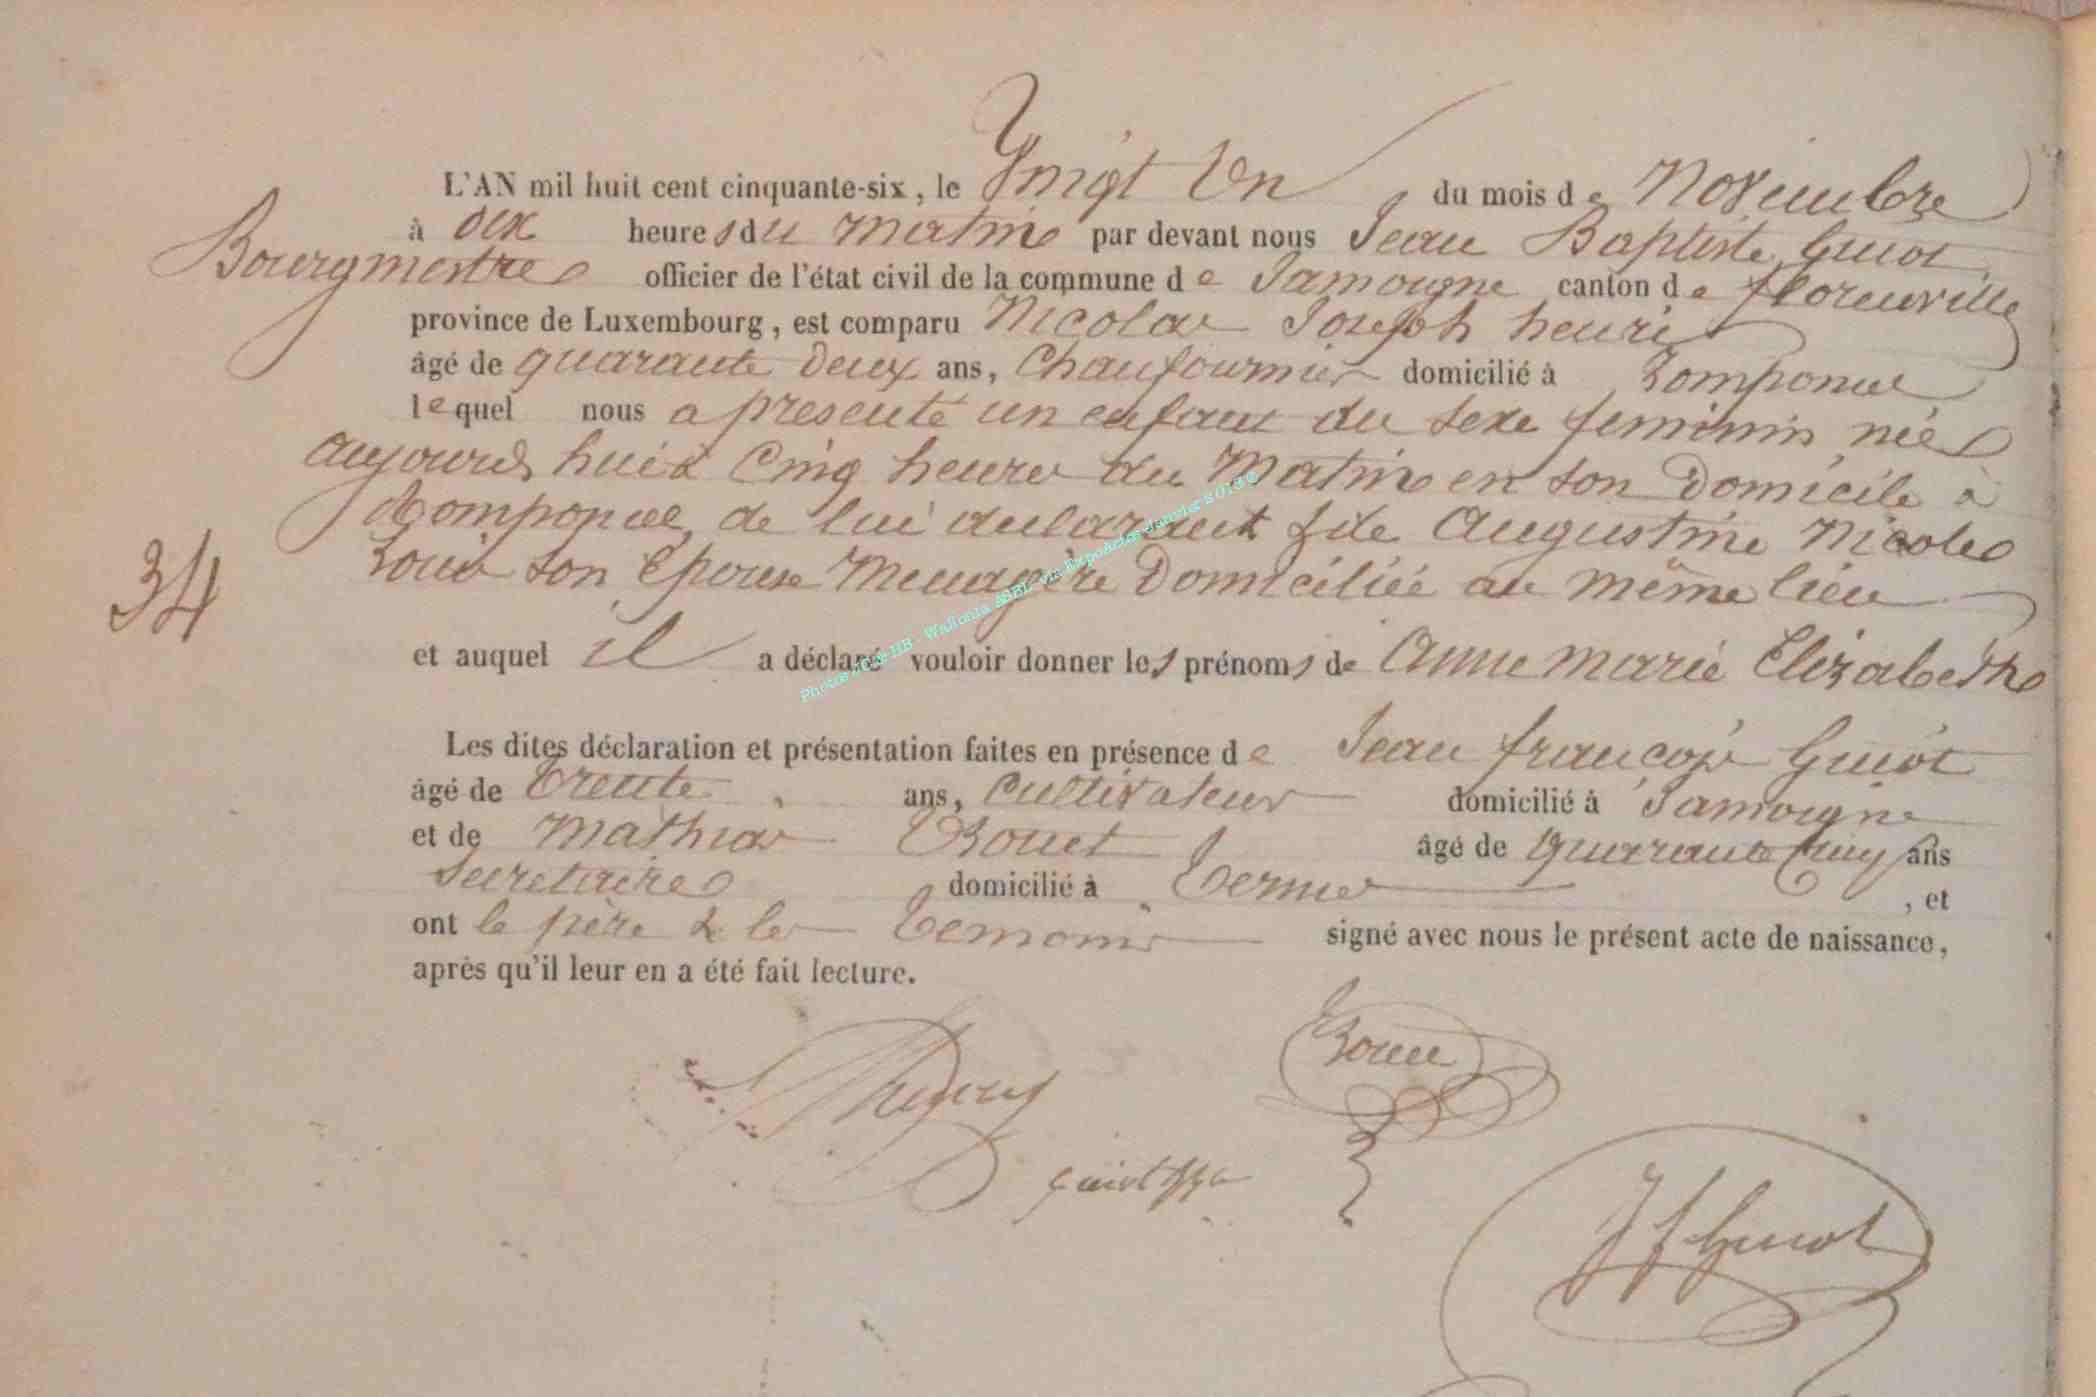 L'AN mil huit cent cinquante-six, le Vingt Un du mois de Novembre
à dix heures du matin par devant nous Jean Baptiste Guiot
Bourgmestre officier de l'état civil de la commune de Jamoigne canton de florenville
province de Luxembourg, est comparu Nicolas Joseph henri
âgé de quarante deux ans, Chaufournier domicilié à Romponcel
lequel nous a présenté un enfant du sexe feminin née
aujourd'hui à Cinq heures du Matin en son Domicile à
Romponcel, de lui déclarant & de Augustine Nicole
Louis son Epouse Menagère Domiciliée au même lieu
34
et auquel il a déclaré vouloir donner les prénoms de Anne marie Elizabeth
Les dites déclaration et présentation faites en présence de Jean françois Guiot
âgé de trente ans, Cultivateur domicilié à Jamoigne
et de Mathias âgé de Quarante Cinq ans
Secretaire domicilié à Termes, et
ont le père & les Temoins signé avec nous le présent acte de naissance,
après qu'il leur en a été fait lecture.
J f Guiot